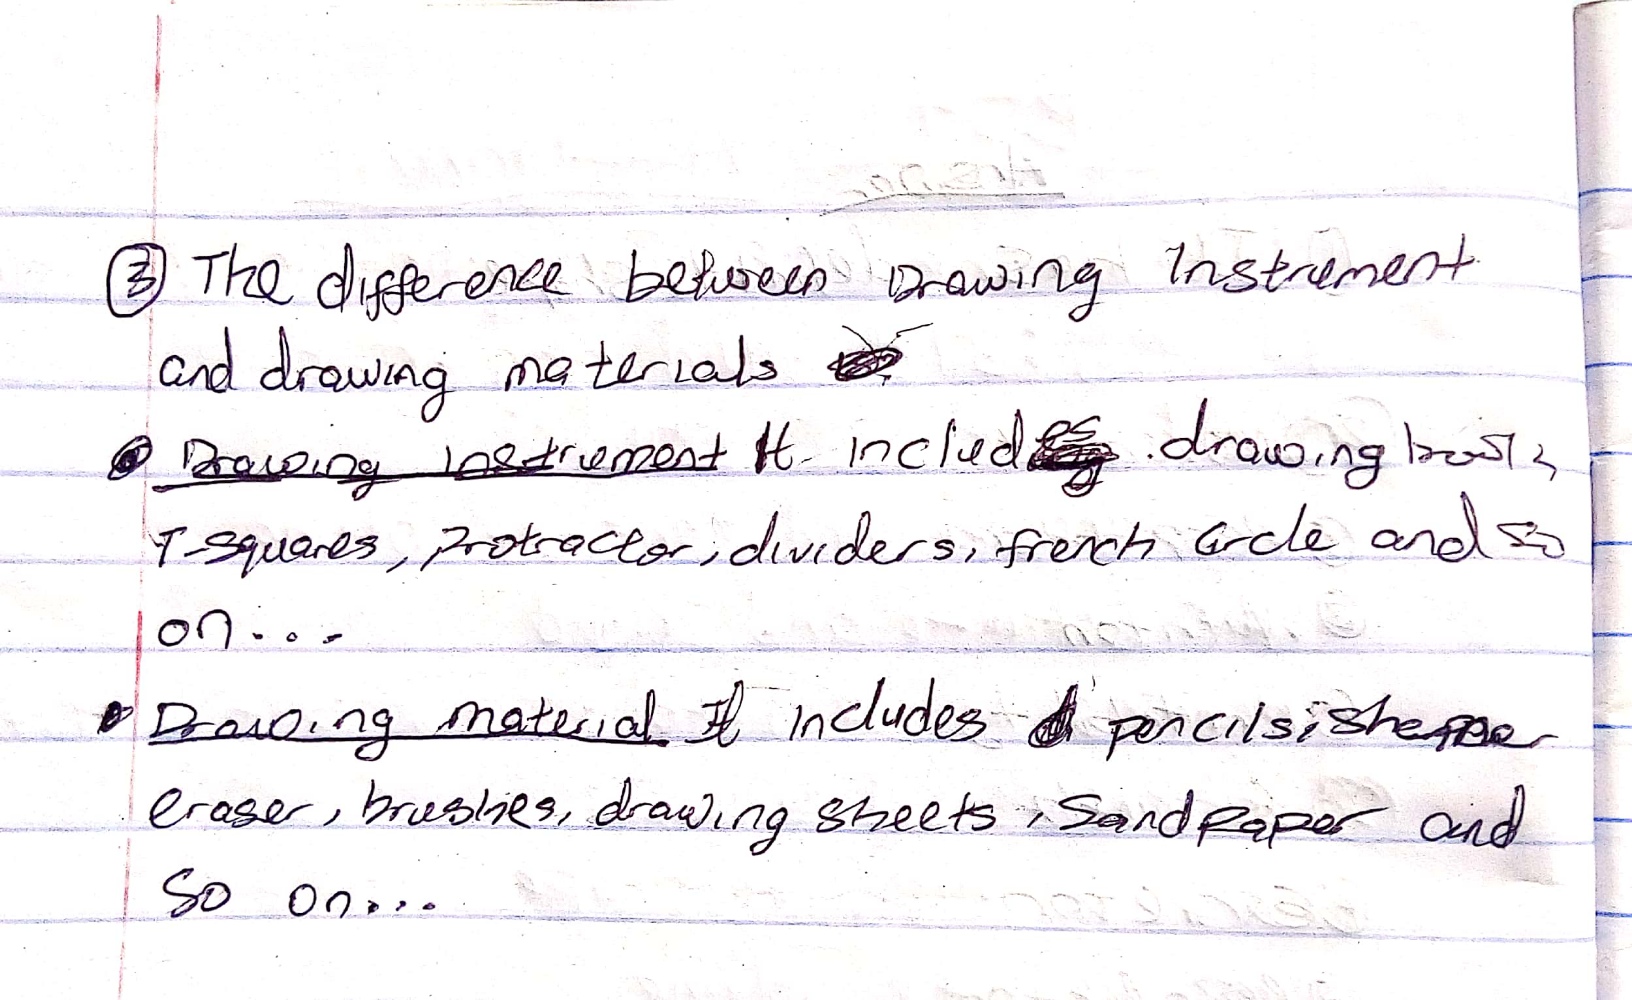 ③ The difference between Drawing Instrument
and drawing materials
• Drawing instrument It includes drawing
T-squares, Protractor, dividers, french Circle and so
on...
• Drawing material It includes pencils, sharpner
eraser, brushes, drawing sheets, Sandpaper and
So on...